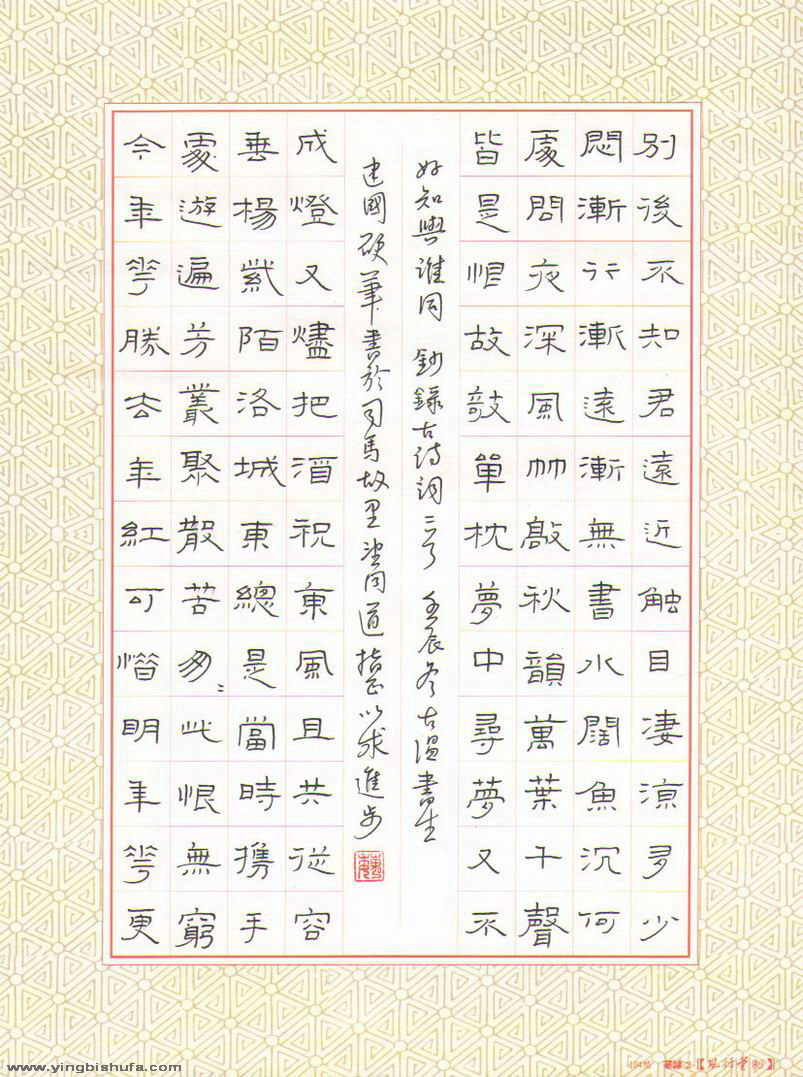 別後不知君遠近触目凄涼多少
悶漸行漸遠漸無書水闊魚沉何
處問夜深風竹敲秋韻萬葉千聲
皆是恨故敧單枕夢中尋夢又不
成燈又燼把酒祝東風且共從容
垂楊紫陌洛城東總是當時携手
處遊遍芳叢聚散苦匆〻此恨無窮
今年花勝去年紅可惜明年花更
好知與誰同 鈔録古詩詞二首 壬辰冬古溫書生
建國硬筆書於司馬故里望同道指正以求進步
www.yingbishufa.com